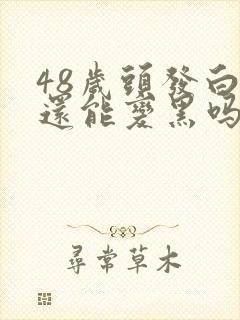 48歲頭發白
還能變黑嗎
尋常草木